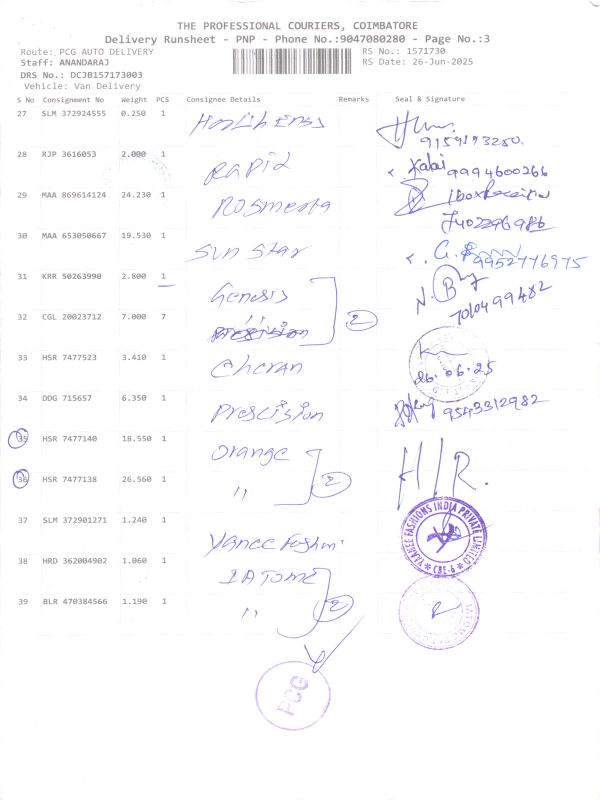 THE PROFESSIONAL COURIERS, COIMBATORE
Delivery Runsheet - PNP - Phone No.:9047080280 - Page No.:3
Route: PCG AUTO DELIVERY RS No.: 1571730
Staff: ANANDARAJ RS Date: 26-Jun-2025
DRS No.: DCJB157173003
Vehicle: Van Delivery
S No Consignment No Weight PCS Consignee Details Remarks Seal & Signature
27 SLM 372924555 0.250 1
28 RJP 3616053 2.000 1 Rapid Kalai 9994600266
29 MAA 869614124 24.230 1 Rosmerta
30 MAA 653050667 19.530 1 Sun Star 9952776975
31 KRR 50263990 2.800 1 Genesis 7010499482
32 CGL 20023712 7.000 7 " 2
33 HSR 7477523 3.410 1 Cheran 26.06.25
34 DDG 715657 6.350 1 Prescision 9543312982
35 HSR 7477140 18.550 1 Orange
36 HSR 7477138 26.560 1 " 2 H.R.
37 SLM 372901271 1.240 1 Yanee Fashm
YAANEE FASHIONS INDIA PRIVATE LIMITED CBE-6
38 HRD 362004902 1.060 1 IATOME
39 BLR 470384566 1.190 1 " 2
PCG